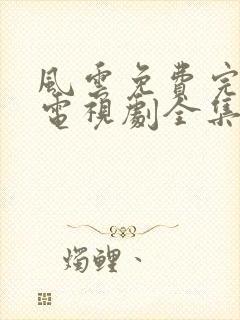 風雲免費完
電視劇全集
燭鯉、